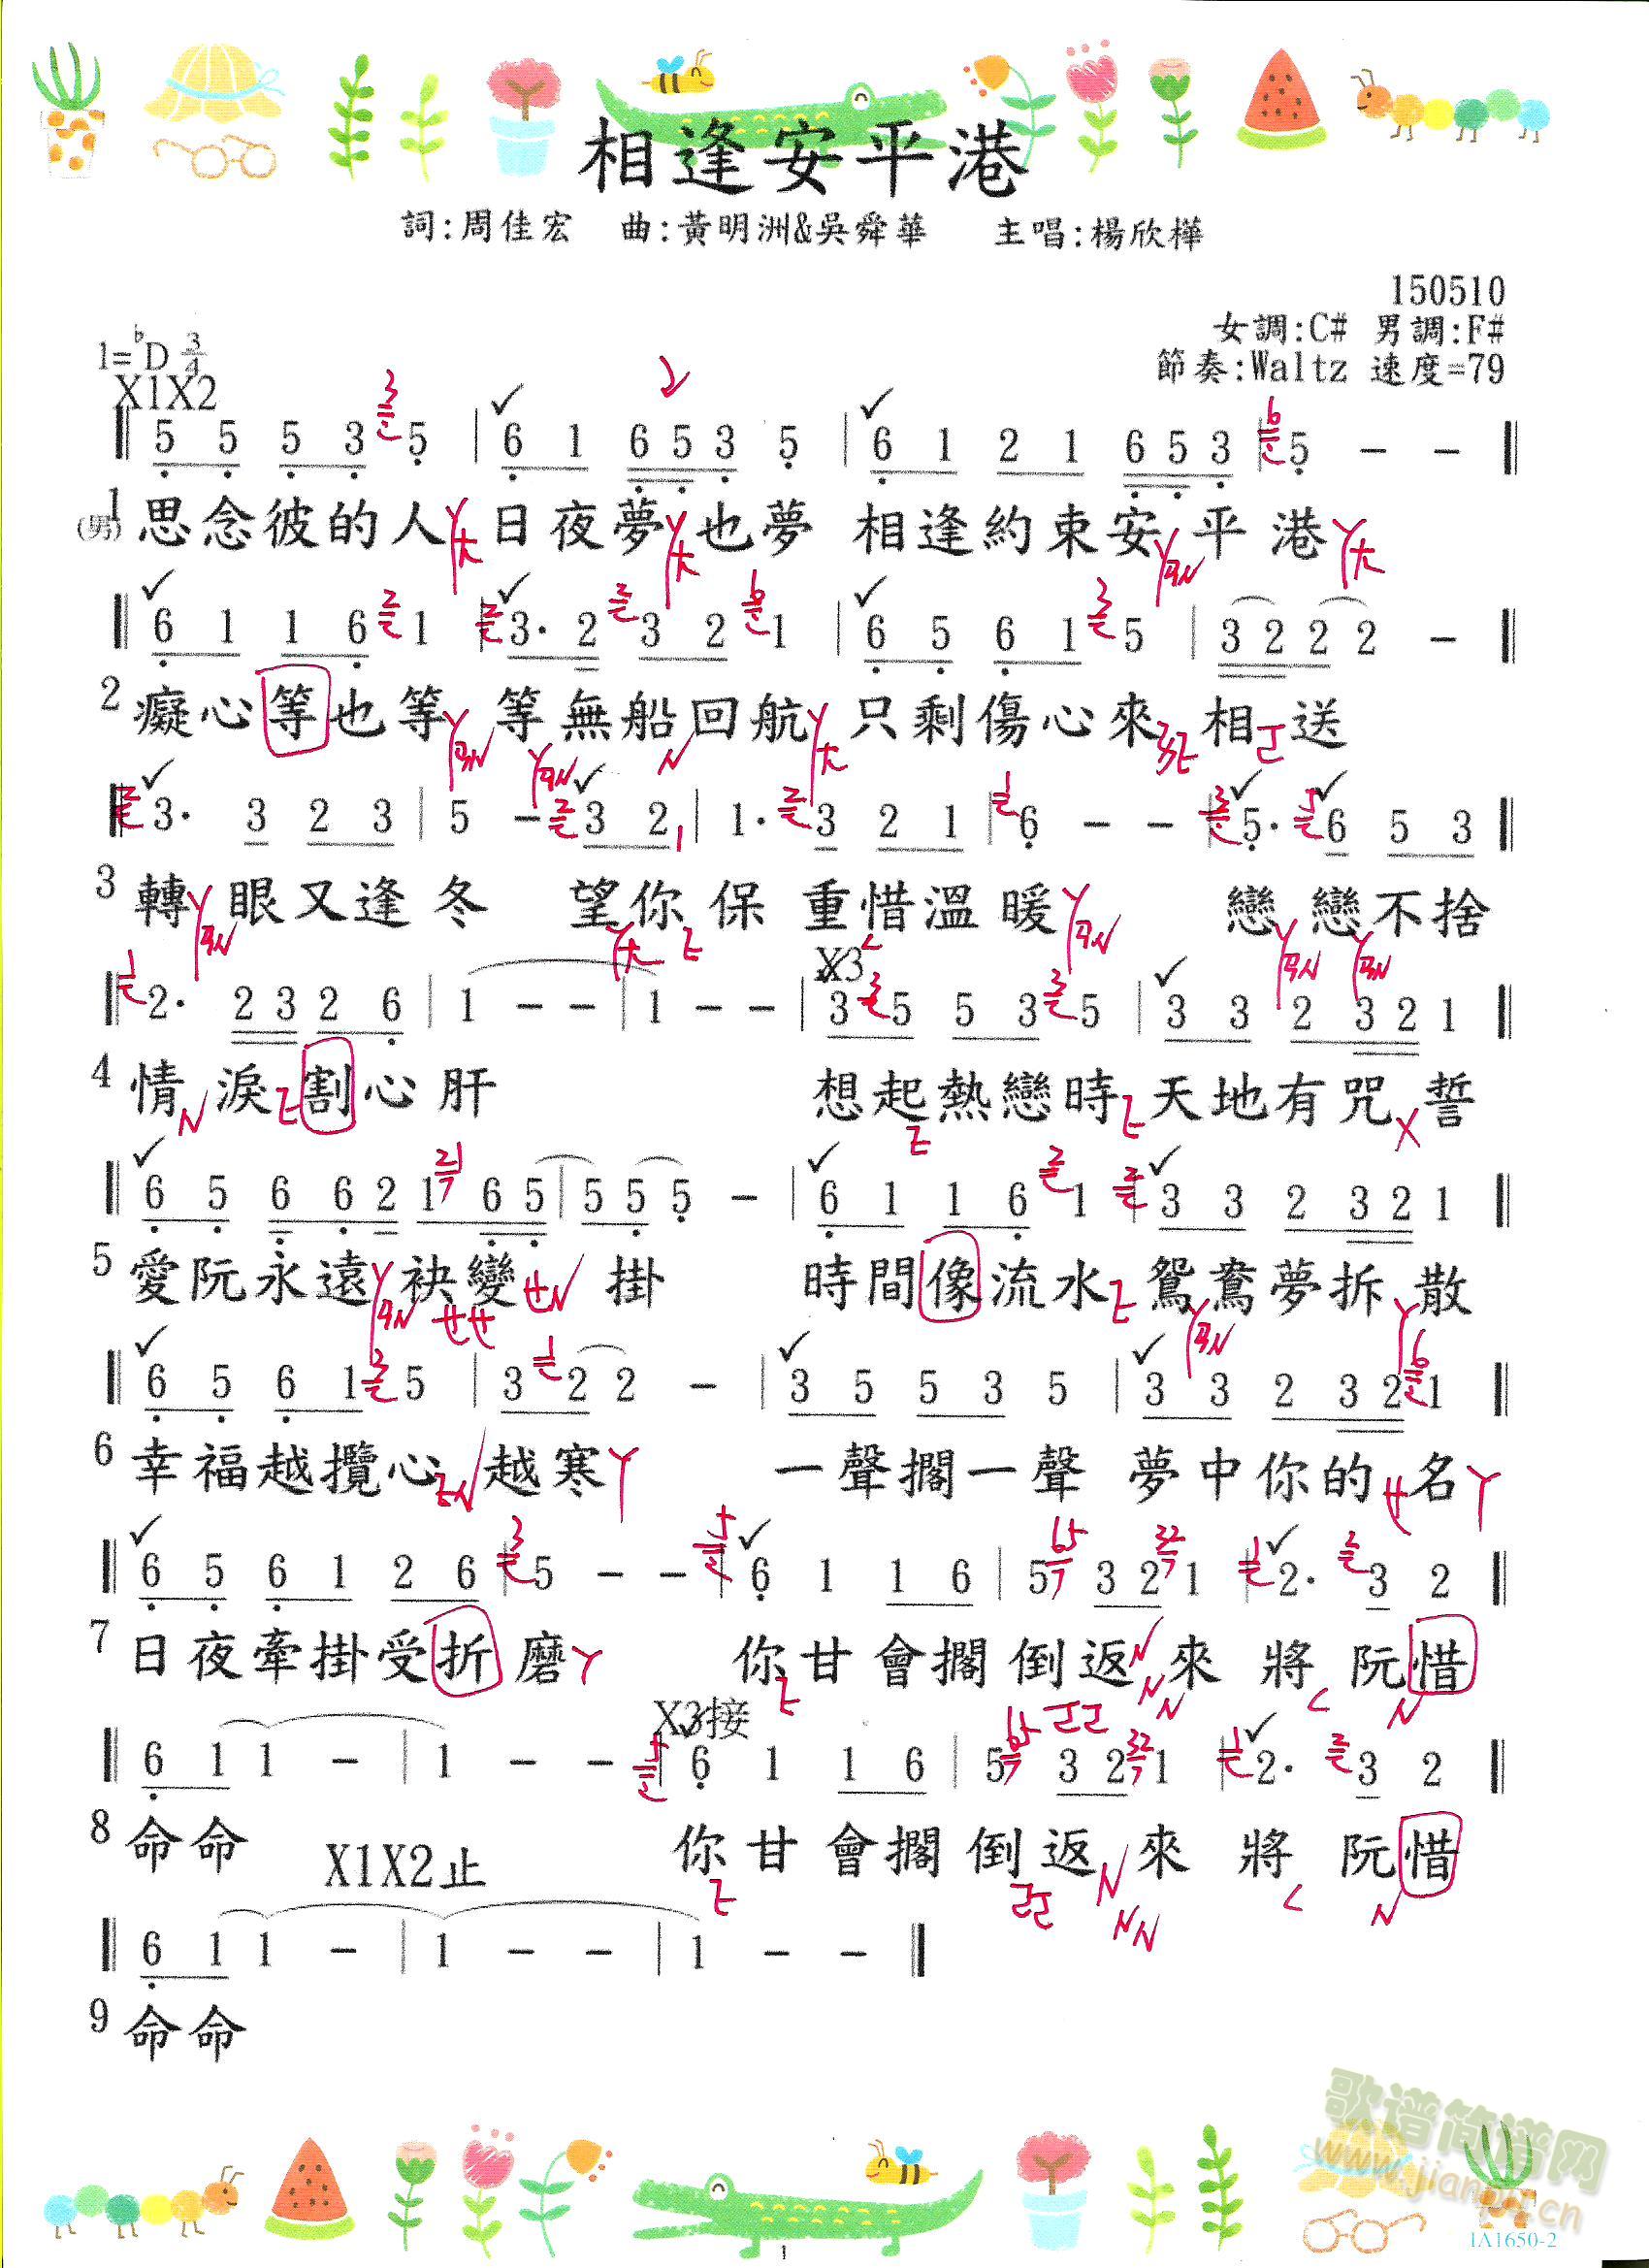 相逢安平港
詞:周佳宏 曲:黃明洲&吳舜華 主唱:楊欣樺
150510
女調:C# 男調:F#
1=♭D 3/4
節奏:Waltz 速度=79
X1X2
5 5 5 3 5 | 6 1 6 5 3 5 | 6 1 2 1 6 5 3 | 5 - -
1 (男) 思念彼的人 日夜夢也夢 相逢約束安平港
6 1 1 6 1 | 3· 2 3 2 1 | 6 5 6 1 5 | 3 2 2 2 -
2 癡心等也等 等無船回航 只剩傷心來相送
3· 3 2 3 | 5 - 3 2 | 1· 3 2 1 | 6 - - | 5· 6 5 3
3 轉眼又逢冬 望你保重惜溫暖 戀戀不捨
X3
2· 2 3 2 6 | 1 - - | 1 - - | 3 5 5 3 5 | 3 3 2 3 2 1
4 情淚割心肝 想起熱戀時 天地有咒誓
6 5 6 6 2 1 6 5 | 5 5 5 - | 6 1 1 6 1 | 3 3 2 3 2 1
5 愛阮永遠袂變掛 時間像流水 鴛鴦夢拆散
6 5 6 1 5 | 3 2 2 - | 3 5 5 3 5 | 3 3 2 3 2 1
6 幸福越攬心越寒 一聲擱一聲 夢中你的名
6 5 6 1 2 6 | 5 - - | 6 1 1 6 | 5 3 2 1 | 2· 3 2
7 日夜牽掛受折磨 你甘會擱倒返來將阮惜
X3接
6 1 1 - | 1 - - | 6 1 1 6 | 5 3 2 1 | 2· 3 2
8 命命 X1X2止 你甘會擱倒返來將阮惜
6 1 1 - | 1 - - | 1 - -
9 命命
歌谱简谱网
www.jianpu.cn
1A1650-2
1